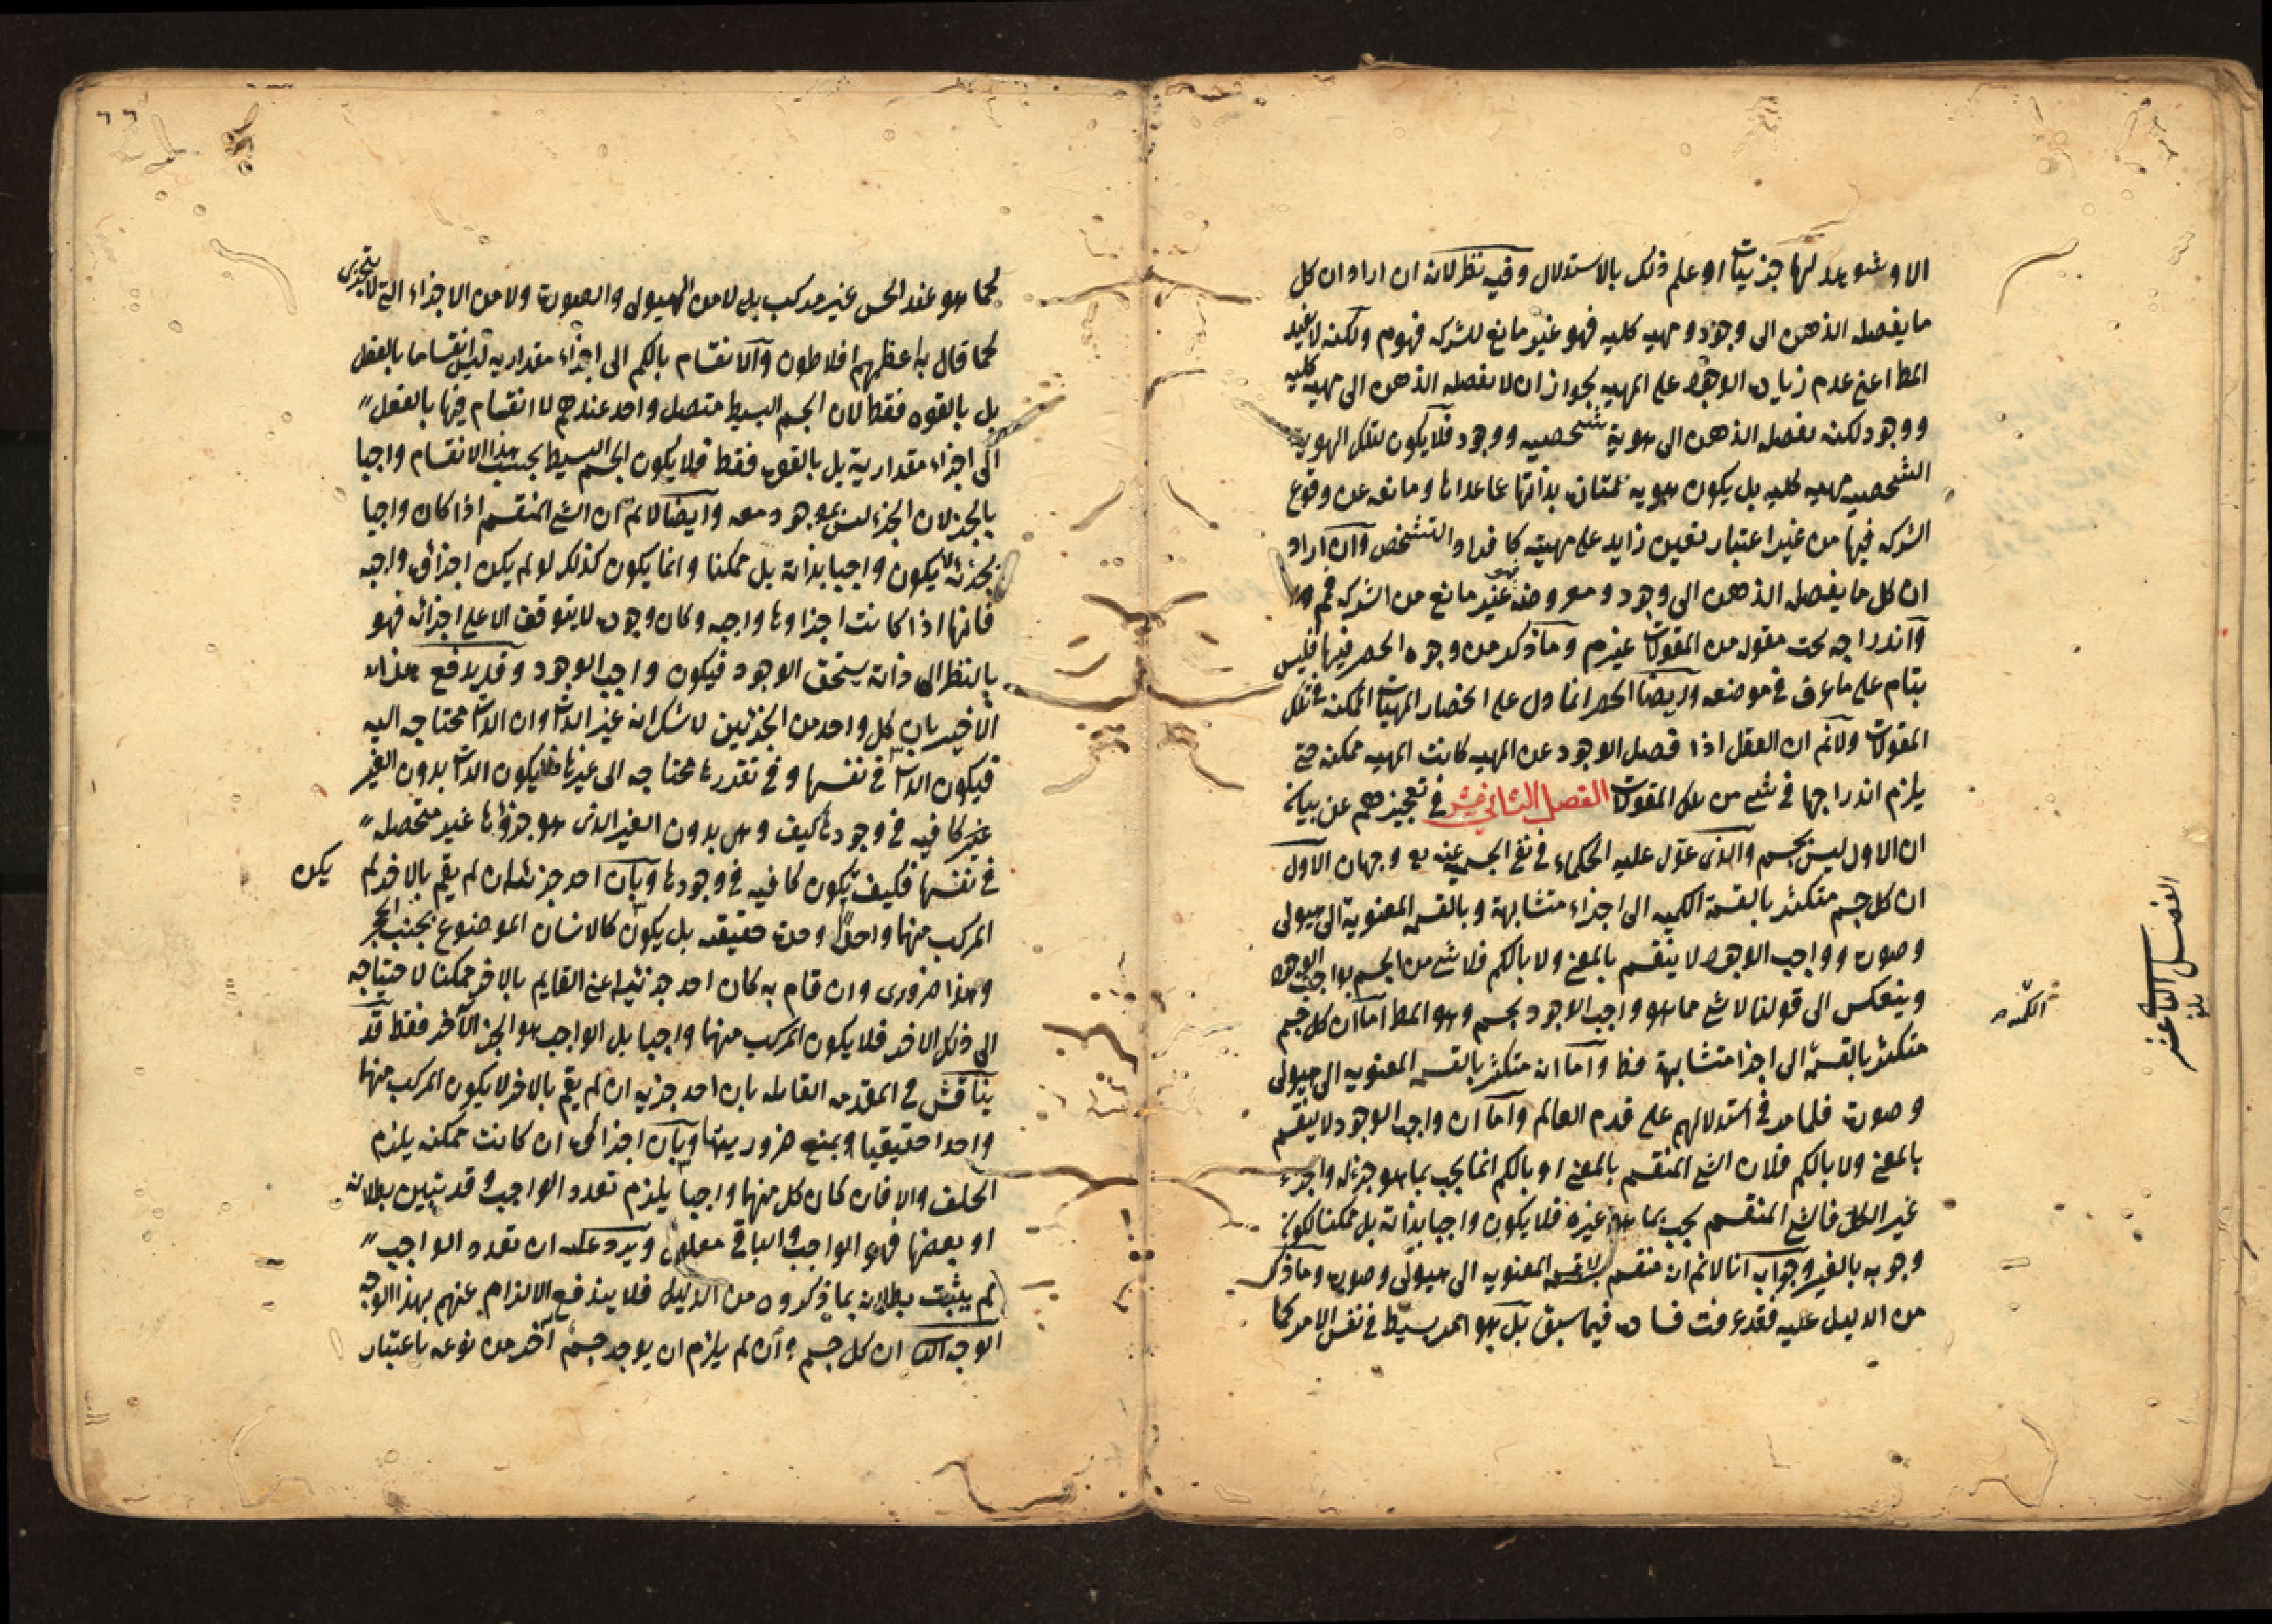 الا وشوهد لها جزييات او علم ذلك بالاستدلال وفيه نظر لانه ان اراد ان كل
ما يفصله الذهن الى وجود ومهيه كليه فهو غير مانع للشركه فهوم ولكنه لا يفيد
المط اعنى عدم زيادة الوجود على المهيه لجواز ان لا يفصله الذهن الى مهيه كليه
ووجود لكنه يفصله الذهن الى هوية شخصيه ووجود فلا يكون لتلك الهوية
الشخصيه مهيه كليه بل يكون هويه ممتازة بذاتها عما عداها ومانعه عن وقوع
الشركه فيها من غير اعتبار تعين زايد على مهيته كافراد التشخص وان اراد
ان كل ما يفصله الذهن الى وجود ومعروضه فهو غير مانع من الشركه فمم
واندراجه تحت مقوله من المقولات غيرم وما ذكر من وجوه الحصر فيها فليس
بتام على ما عرف فى موضعه وايضا الحصر انما دل على انحصار المهيات الممكنه فى تلك
المقولات ولانم ان العقل اذا فصل الوجود عن المهيه كانت المهيه ممكنه حتى
يلزم اندراجها فى شى من تلك المقولات الفصل الثانى عشر فى تعجيزهم عن بيان
ان الاول ليس بجسم والذى عول عليه الحكماء فى نفى الجسميه عنه تع وجهان الاول
ان كل جسم متكثر بالقسمة الكميه الى اجزاء متشابهة وبالقسمه المعنوية الى هيولى
وصورة وواجب الوجود لا ينقسم بالمعنى ولا بالكم فلا شى من الجسم بواجب الوجود
وينعكس الى قولنا لا شى مما هو واجب الوجود بجسم وهو المط اما ان كل جسم
متكثر بالقسمة الى اجزا متشابهة فظ واما انه متكثر بالقسمه المعنويه الى هيولى
وصورت فلما مر فى استدلالهم على قدم العالم واما ان واجب الوجود لا ينقسم
بالمعنى ولا بالكم فلان الشى المنقسم بالمعنى او بالكم انما يجب بما هو جزء له والجزء
غير الكل فالشى المنقسم يجب بما هو غيره فلا يكون واجبا بذاته بل ممكنا لكون
وجوبه بالغير وجوابه انا لانم انه منقسم بالقسمه المعنويه الى هيولى وصورة وما ذكر
من الدليل عليه فقد عرفت فساده فيما سبق بل هو امر بسيط فى نفس الامر كما
الكميه
الفصل الثانى عشر
كما هو عند الحس غير مركب بل لا من الهيولى والصورة ولا من الاجزاء التى لا يتجزى
كما قال به اعظمهم افلاطون والانقسام بالكم الى اجزاء مقداريه ليس انقساما بالفعل
بل بالقوه فقط لان الجسم البسيط متصل واحد عندهم لا انقسام فيها بالفعل
الى اجزاء مقدارية بل بالقوة فقط فلا يكون الجسم البسيط بحسب هذا الانقسام واجبا
بالجز لان الجزء ليس بموجود معه وايضا لانم ان الشى المنقسم اذا كان واجبا
بجزئه لا يكون واجبا بذاته بل ممكنا وانما يكون كذلك لو لم يكن اجزاؤه واجبه
فانها اذا كانت اجزاوها واجبه وكان وجوده لا يتوقف الا على اجزائه فهو
بالنظر الى ذاته يستحق الوجود فيكون واجب الوجود وقد يدفع هذا
الاخير بان كل واحد من الجزئين لا شك انه غير الذات وان الذات محتاجه اليه
فيكون الذات فى نفسها وفى تقررها محتاجه الى غيرها فلا يكون الذات بدون الغير
غير كافيه فى وجودها كيف وهى بدون الغير الذى هو جزؤها غير متحصله
فى نفسها فكيف تكون كافيه فى وجودها وبان احد جزئيه ان لم يقم بالاخر لم يكن
المركب منها واحدا وحدة حقيقيه بل يكون كالانسان الموضوع بجنب الحجر
وهذا ضرورى وان قام به كان احد جزئيه اعنى القايم بالاخر ممكنا لاحتياجه
الى ذلك الاخر فلا يكون المركب منهما واجبا بل الواجب هو الجز الآخر فقط قد
يناقش فى المقدمه القايله بان احد جزيه ان لم يقم بالاخر لا يكون المركب منهما
واحدا حقيقيا ويمنع ضروريتها وبان اجزائه ان كانت ممكنه يلزم
الخلف والا فان كان كل منهما واجبا يلزم تعدد الواجب وقد تبين بطلانه
او بعضها فهو الواجب والباقى معلول ويرد عليه ان تعدد الواجب
لم يثبت بطلانه بما ذكروه من الدليل فلا يندفع الالزام عنهم بهذا الوجه
الوجه الثانى ان كل جسم وان لم يلزم ان يوجد جسم آخر من نوعه باعتبار